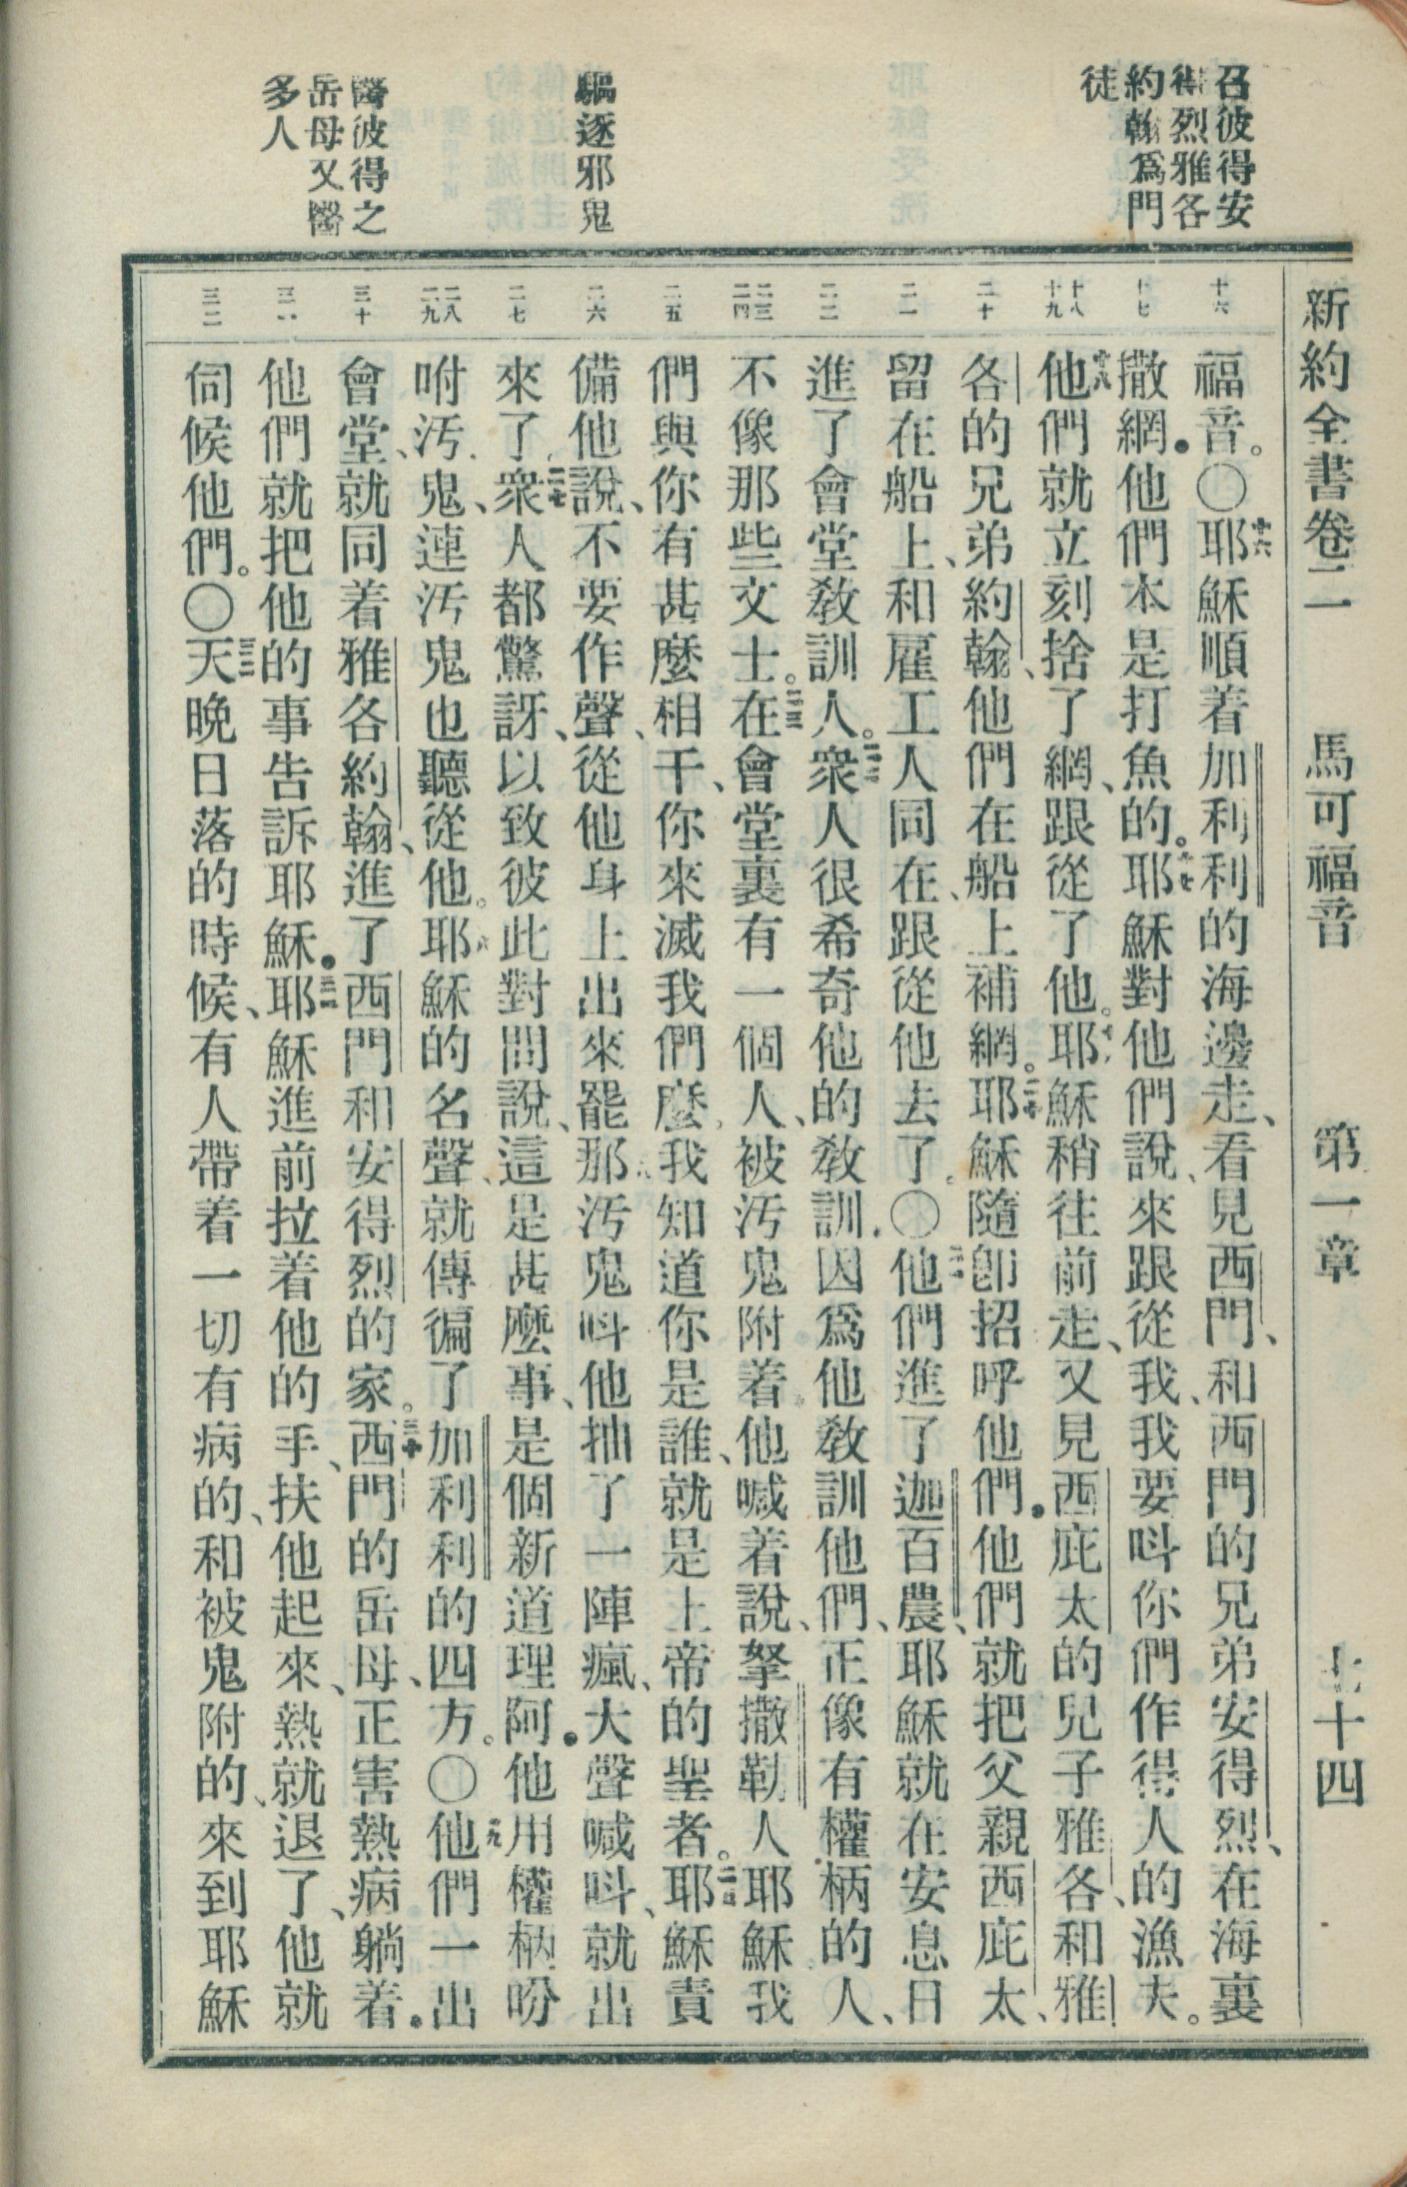 新約全書卷二　馬可福音　第一章　七十四
召彼得安
得烈雅各
約翰爲門
徒
驅逐邪鬼
醫彼得之
岳母又醫
多人
十六
十七
十八
十九
二十
二一
二二
二三
二四
二五
二六
二七
二八
二九
三十
三一
三二
福音。〇十六耶穌順着加利利的海邊走、看見西門、和西門的兄弟安得烈、在海裏
撒網．他們本是打魚的。十七耶穌對他們說、來跟從我、我要呌你們作得人的漁夫。
十八他們就立刻捨了網、跟從了他。耶穌稍往前走、又見西庇太的兒子雅各、和雅
各的兄弟約翰、他們在船上補網。二十耶穌隨卽招呼他們．他們就把父親西庇太、
留在船上、和雇工人同在、跟從他去了。〇二一他們進了迦百農、耶穌就在安息日
進了會堂敎訓人。二二衆人很希奇他的敎訓．因爲他敎訓他們、正像有權柄的人、
不像那些文士。二三在會堂裏有一個人、被汚鬼附着。他喊着說、拏撒勒人耶穌我
們與你有甚麼相干、你來滅我們麼、我知道你是誰、就是上帝的聖者。耶穌責
備他說、不要作聲、從他身上出來罷那汚鬼呌他抽了一陣瘋、大聲喊呌、就出
來了、二七衆人都驚訝、以致彼此對問說、這是甚麼事、是個新道理阿．他用權柄吩
咐汚鬼、連汚鬼也聽從他。耶穌的名聲、就傳徧了加利利的四方。〇二九他們一出
會堂、就同着雅各約翰、進了西門和安得烈的家。三十西門的岳母、正害熱病躺着．
他們就把他的事告訴耶穌．三一耶穌進前拉着他的手、扶他起來、熱就退了、他就
伺候他們。〇三二天晚日落的時候、有人帶着一切有病的、和被鬼附的、來到耶穌